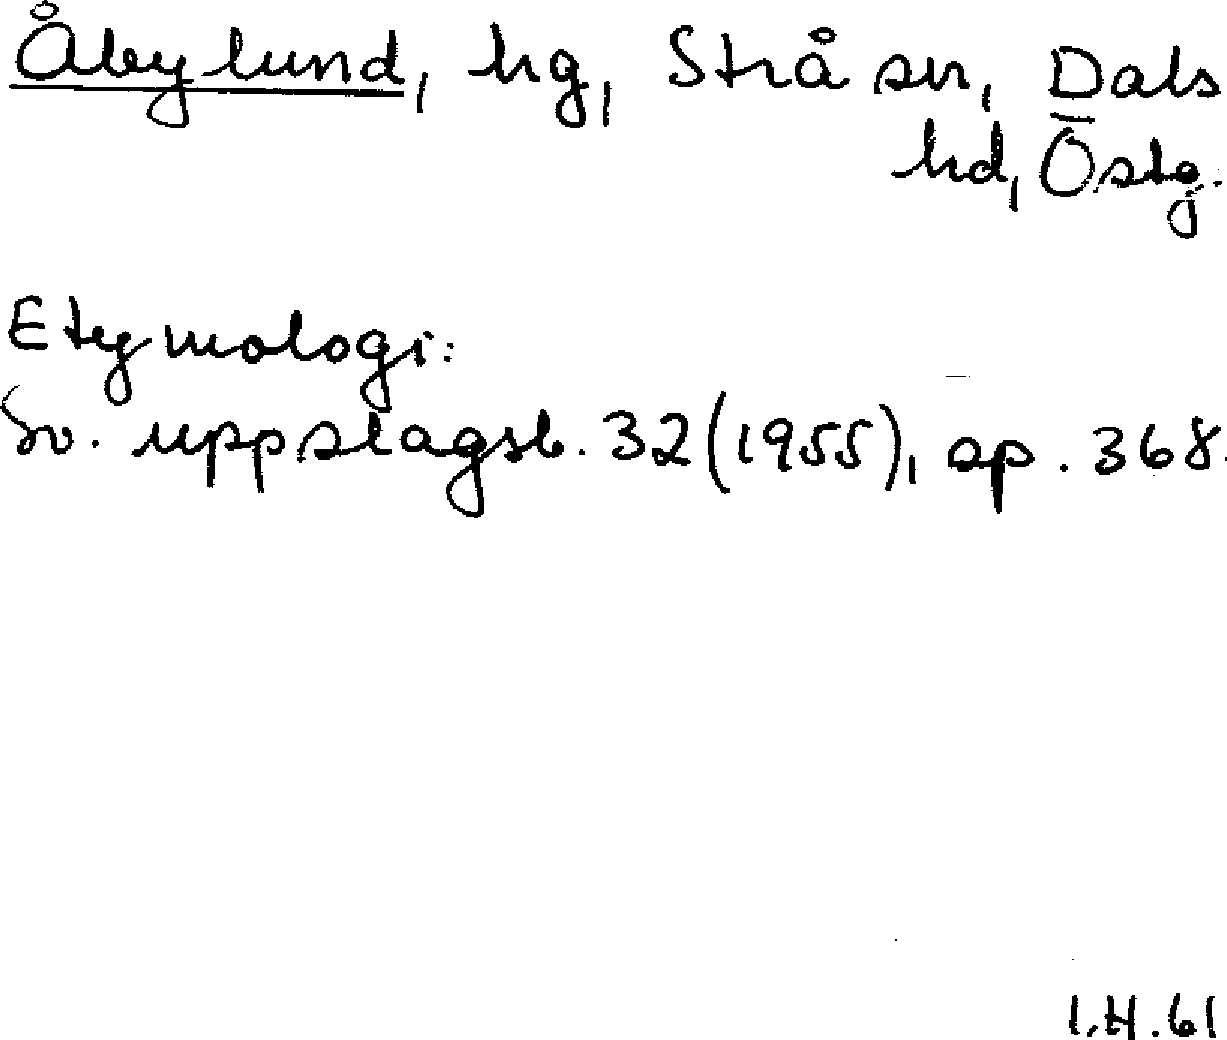 Åbylund, hg, Strå sn, Dals
hd, Östg.
Etymologi:
Sv. uppslagsb. 32 (1955), sp. 368.
I.H.61